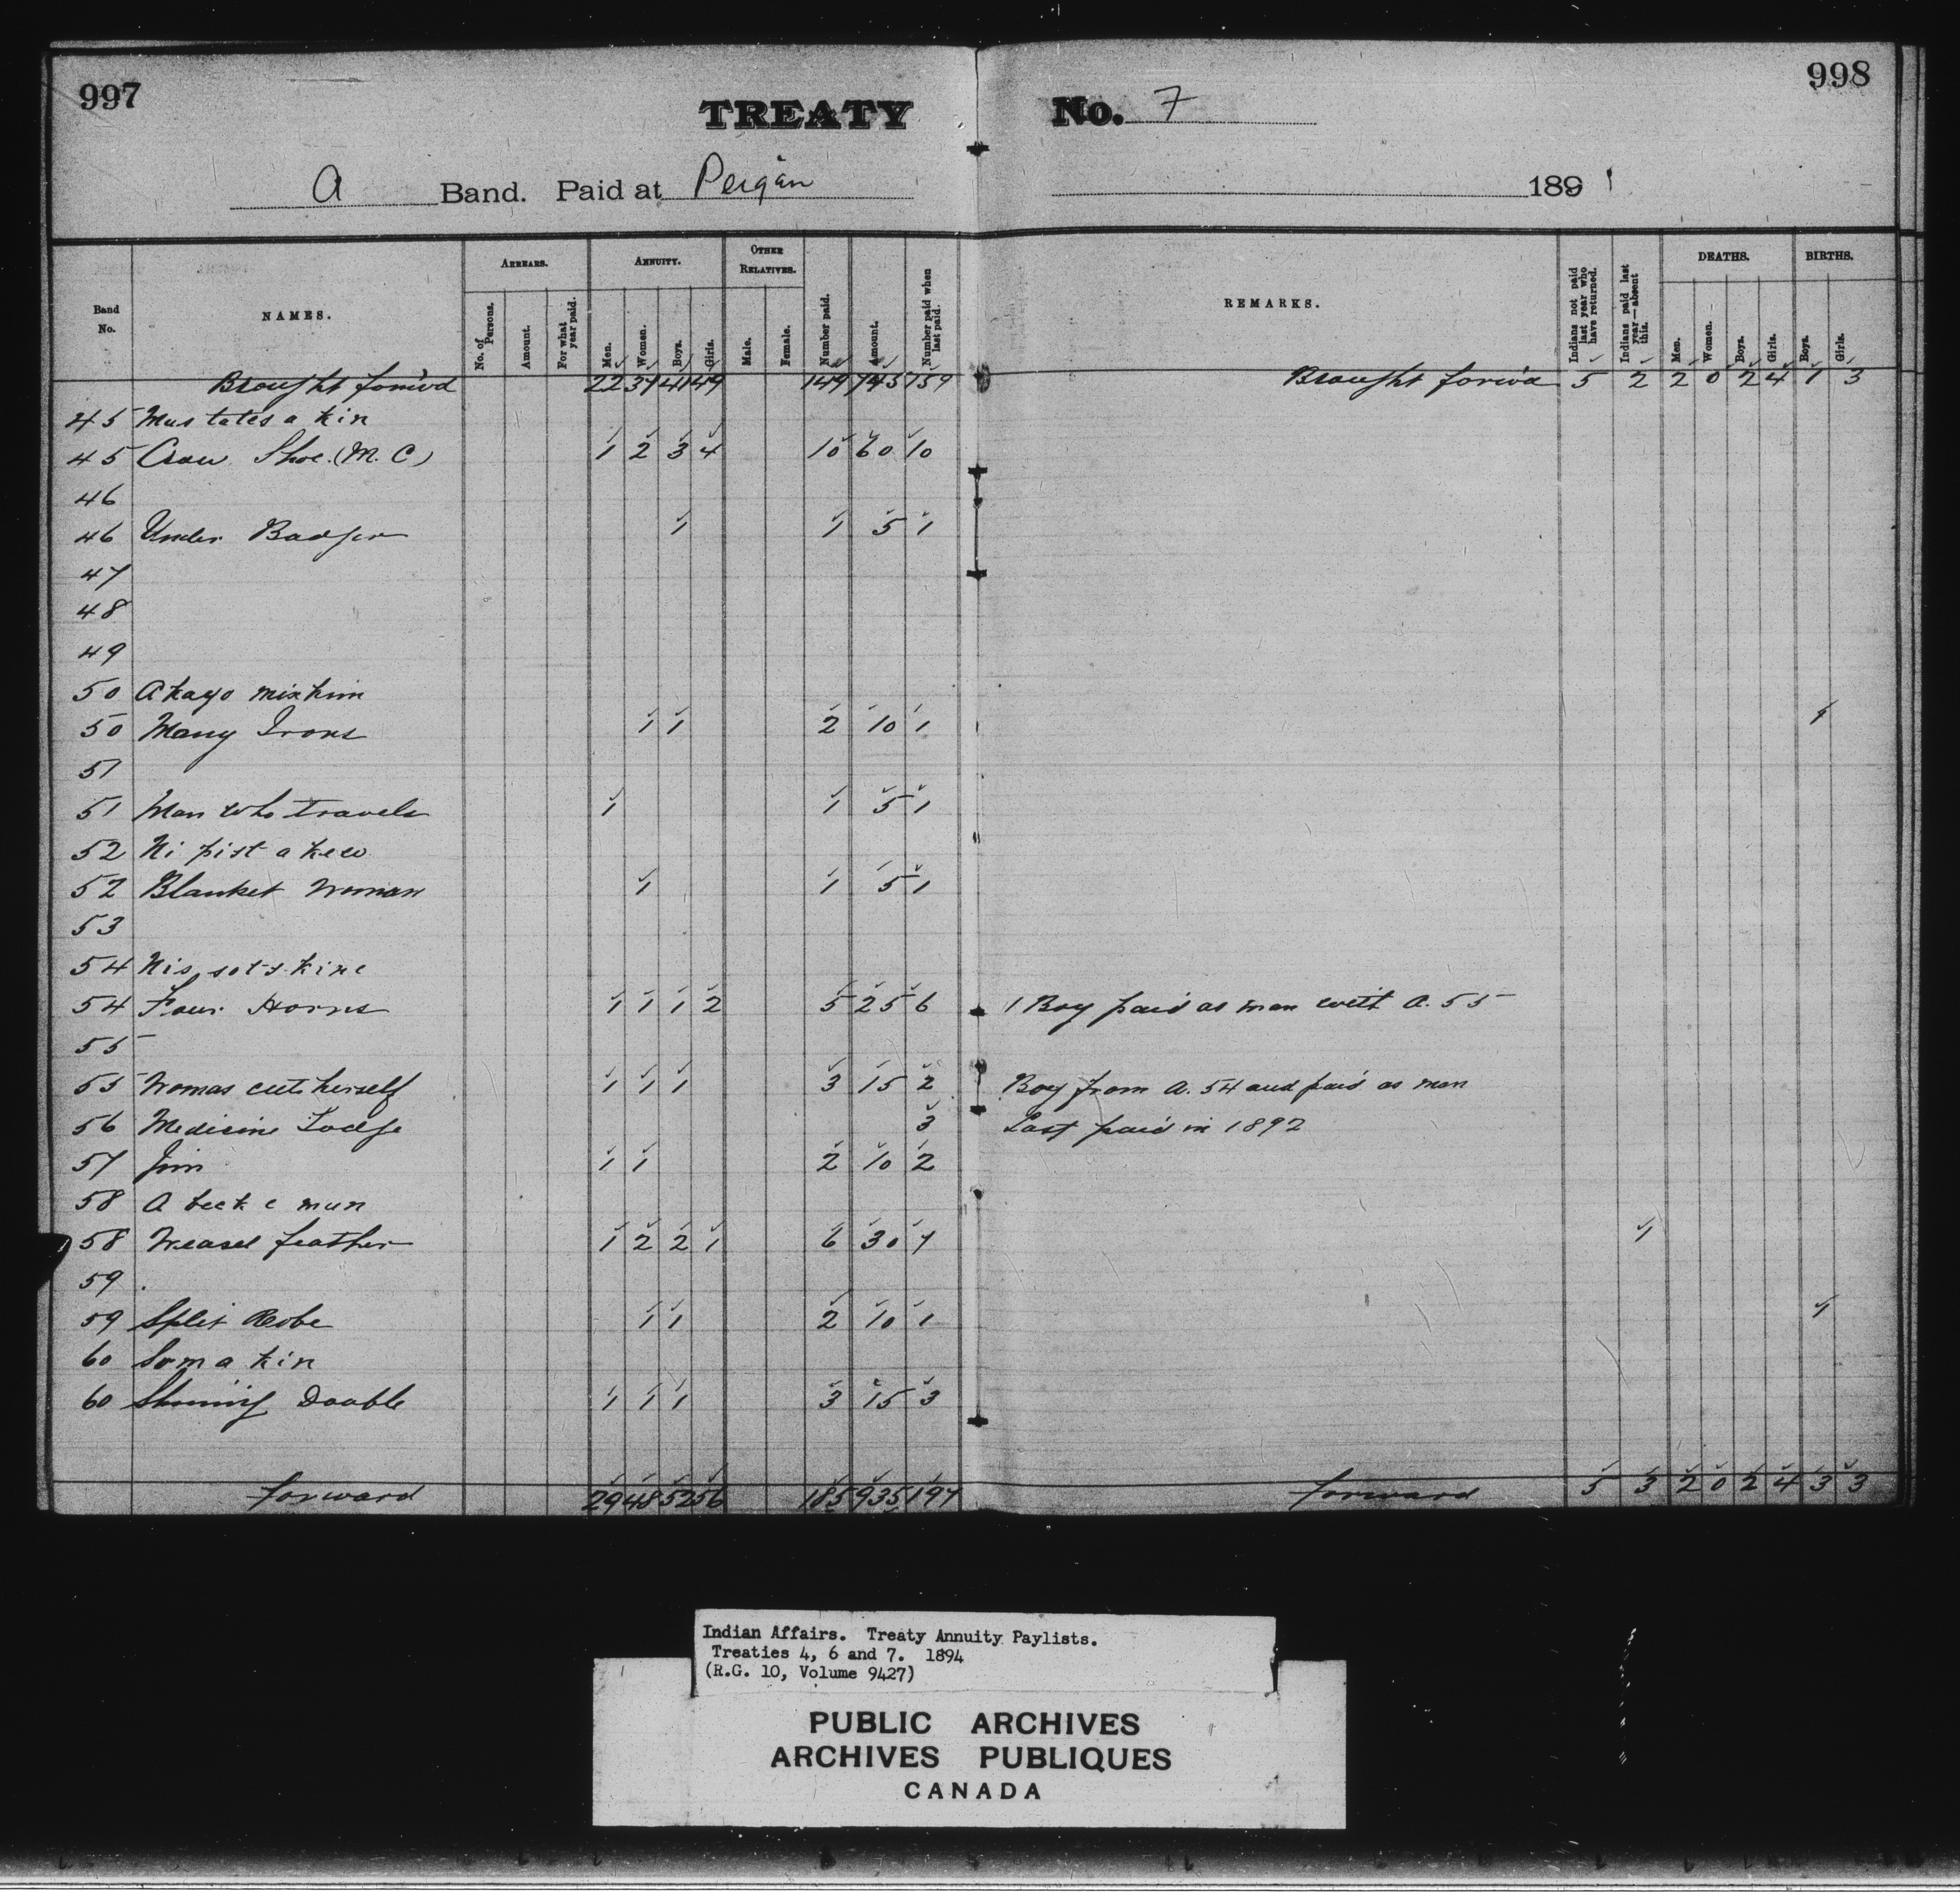 997
998
TREATY No. 7
A Band. Paid at Peigan 189
Band No.
NAMES.
ARREARS.
No. of Persons.
Amount.
For what year paid.
ANNUITY.
Men.
Women.
Boys.
Girls.
OTHER RELATIVES.
Male.
Female.
Number paid.
Amount.
Number paid when last paid.
REMARKS.
Indians not paid last year who have returned.
Indians paid last year—absent this.
DEATHS.
Men.
Women.
Boys.
Girls.
BIRTHS.
Boys.
Girls.
Brought forw'd 22 37 41 49 149 745 159 Brought forw'd 5 2 2 0 2 4 1 3
45 Mus tates a kin
45 Crow Shoe (M.C) 1 2 3 4 10 60 10
46
46 Under Badger 1 1 5 1
47
48
49
50 Akayo mix kim
50 Many Irons 1 1 2 10 1 1
51
51 Man who travels 1 1 5 1
52 Ni pist a kew
52 Blanket Woman 1 1 5 1
53
54 Nis sots kine
54 Four Horns 1 1 1 2 5 25 6 1 Boy paid as man with A. 55
55
55 Woman cut herself 1 1 1 3 15 2 Boy from A. 54 and paid as man
56 Medicine Lodge 3 Last paid in 1892
57 Jim 1 1 2 10 2
58 A teek e mun
58 Weasel feather 1 2 2 1 6 30 7 1
59
59 Split Robe 1 1 2 10 1 1
60 Som a kin
60 Shining Double 1 1 1 3 15 3
forward 29 48 52 56 185 935 197 forward 5 3 2 0 2 4 3 3
Indian Affairs. Treaty Annuity Paylists.
Treaties 4, 6 and 7. 1894
(R.G. 10, Volume 9427)
PUBLIC ARCHIVES
ARCHIVES PUBLIQUES
CANADA